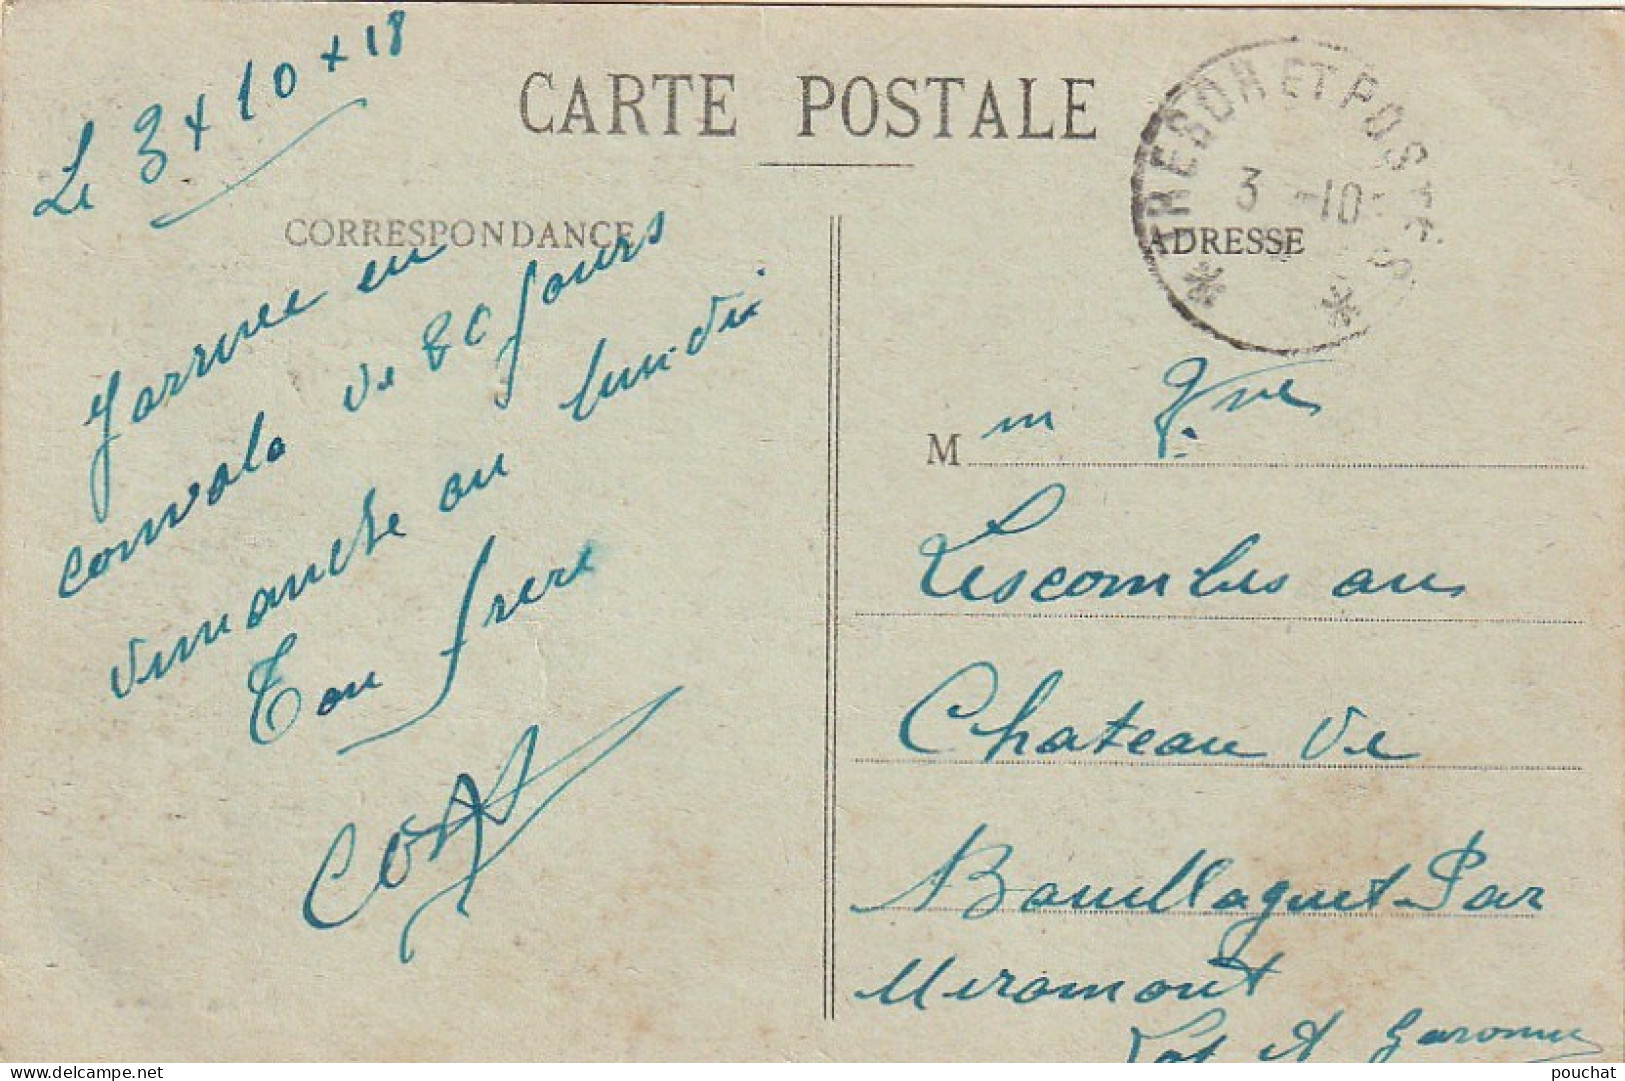 Le 3 x 10 x 18
CARTE POSTALE
CORRESPONDANCE
Jarrivee en
convalo de 20 Jours
dimanche ou lundi
Ton frere
TRESOR ET POSTES
3 -10-
ADRESSE
M m Vve
Lescombes au
Chateau de
Bouillaguet Par
Miramont
Lot et Garonne
pouchat